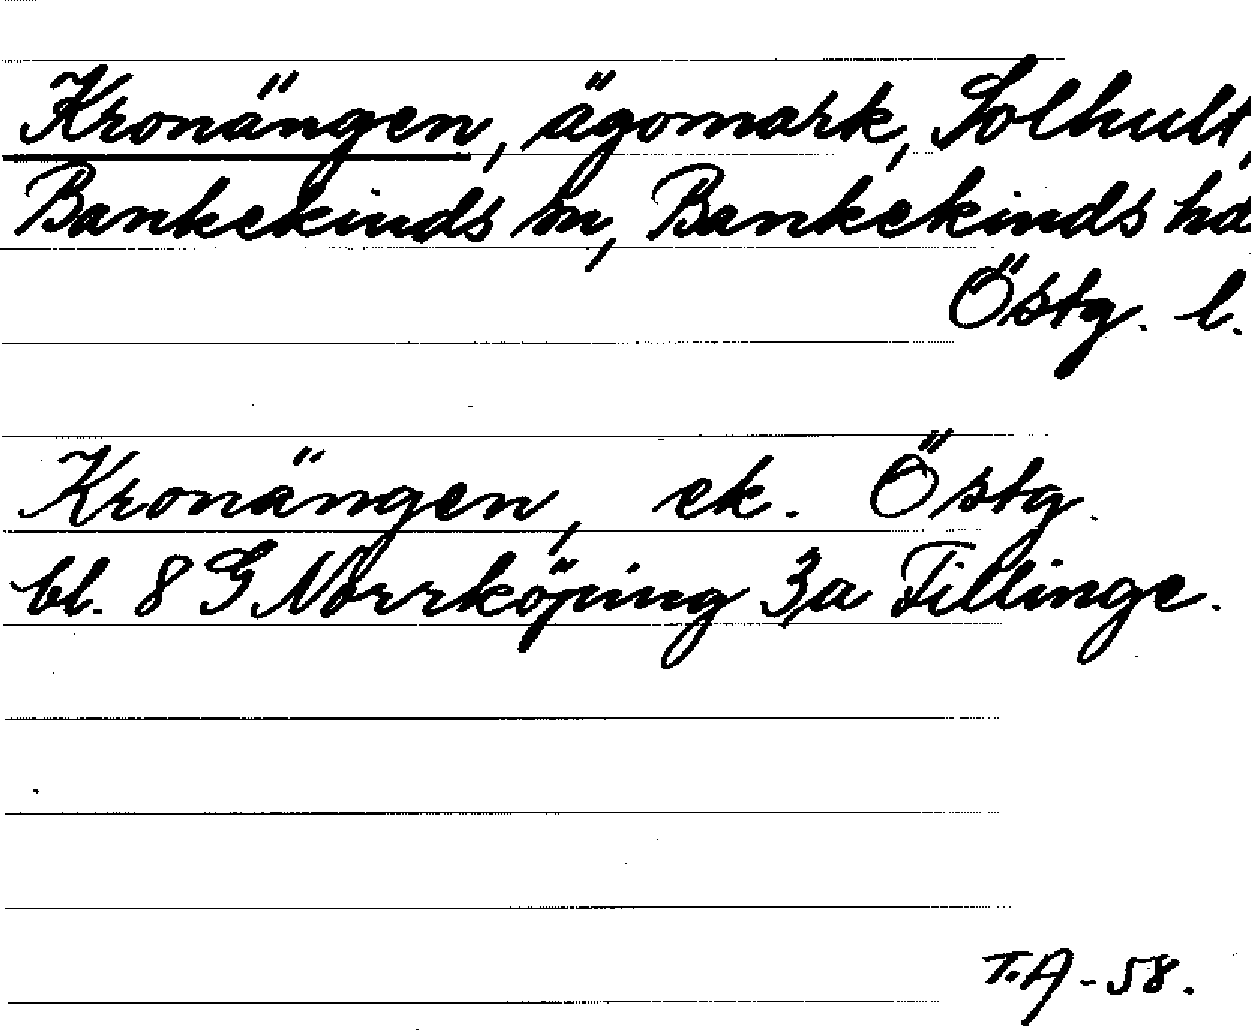 Kronängen, ägomark, Solhult,
Bankekinds sn, Bankekinds hd
Östg. l.
Kronängen, ek. Östg.
bl. 8 G Norrköping 3a Fillinge.
T.A - 58.